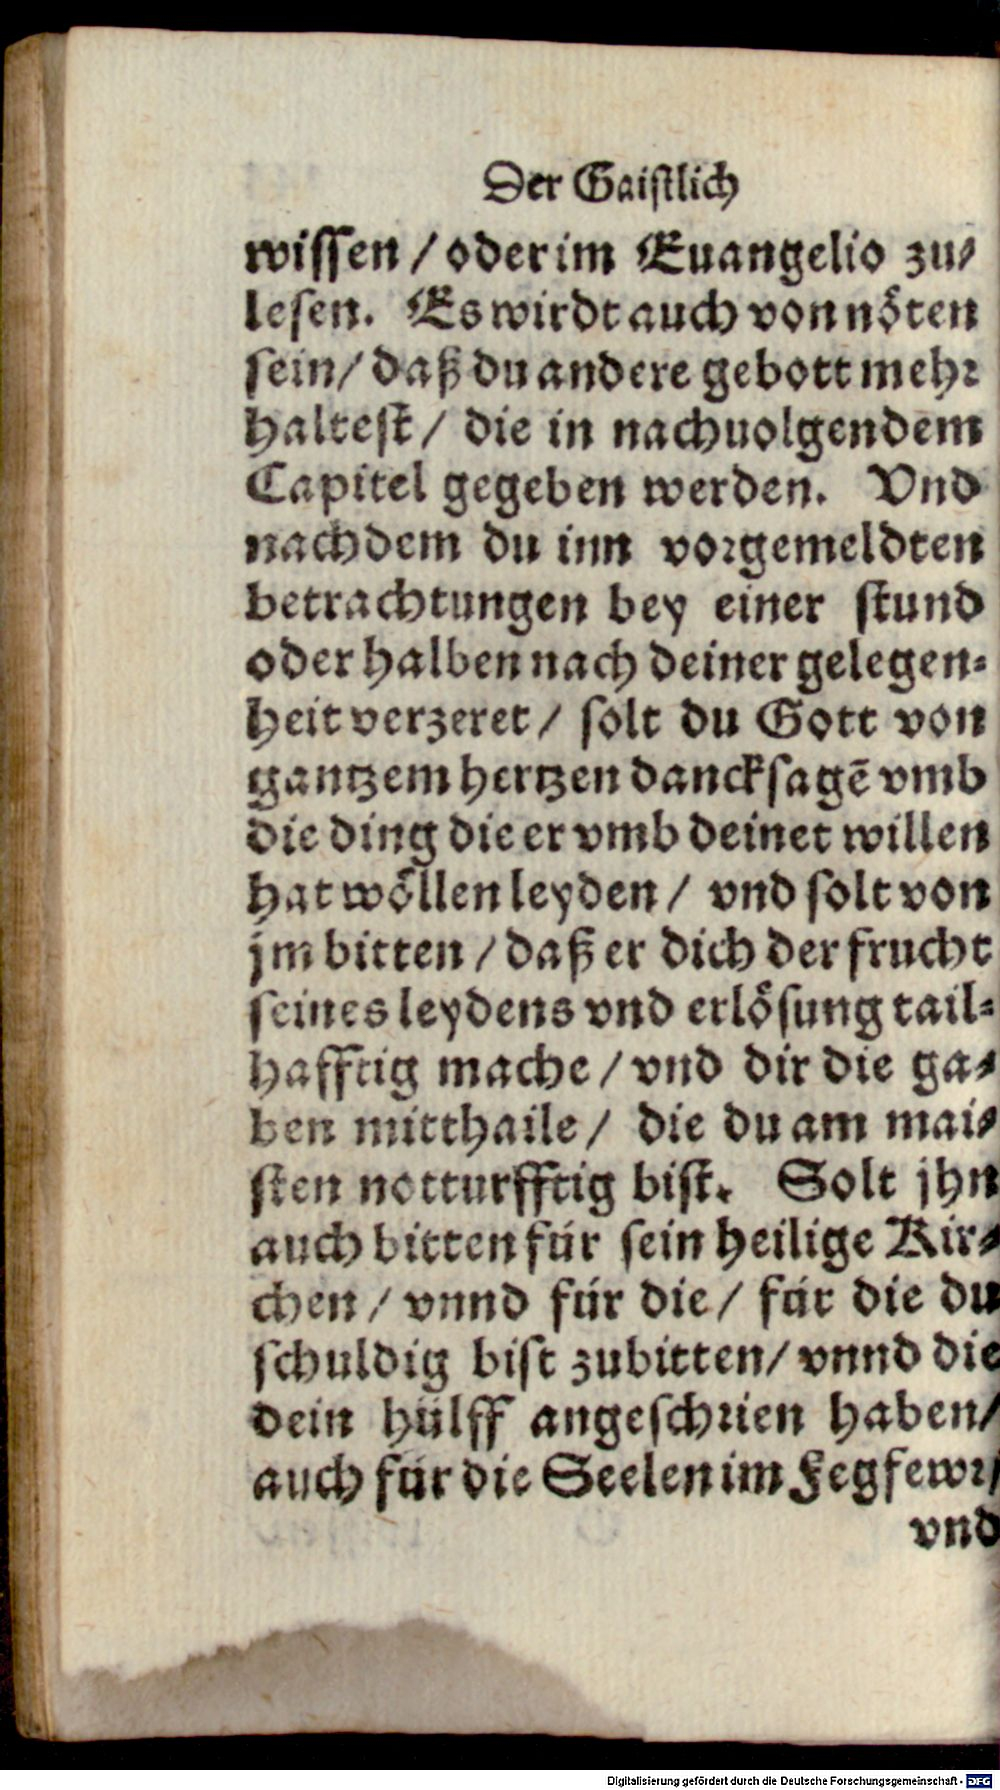 Der Gaistlich
wissen / oder im Euangelio zu-
lesen. Es wirdt auch von nöten
sein / daß du andere gebott mehr
haltest / die in nachuolgendem
Capitel gegeben werden. Vnd
nachdem du inn vorgemeldten
betrachtungen bey einer stund
oder halben nach deiner gelegen-
heit verzeret / solt du Gott von
gantzem hertzen dancksagē vmb
die ding die er vmb deinet willen
hat wöllen leyden / vnd solt von
jm bitten / daß er dich der frucht
seines leydens vnd erlösung tail-
hafftig mache / vnd dir die ga-
ben mitthaile / die du am mai-
sten notturfftig bist. Solt jhn
auch bitten für sein heilige Kir-
chen / vnnd für die / für die du
schuldig bist zubitten / vnnd die
dein hülff angeschrien haben /
auch für die Seelen im Fegfewr /
vnd
Digitalisierung gefördert durch die Deutsche Forschungsgemeinschaft - DFG